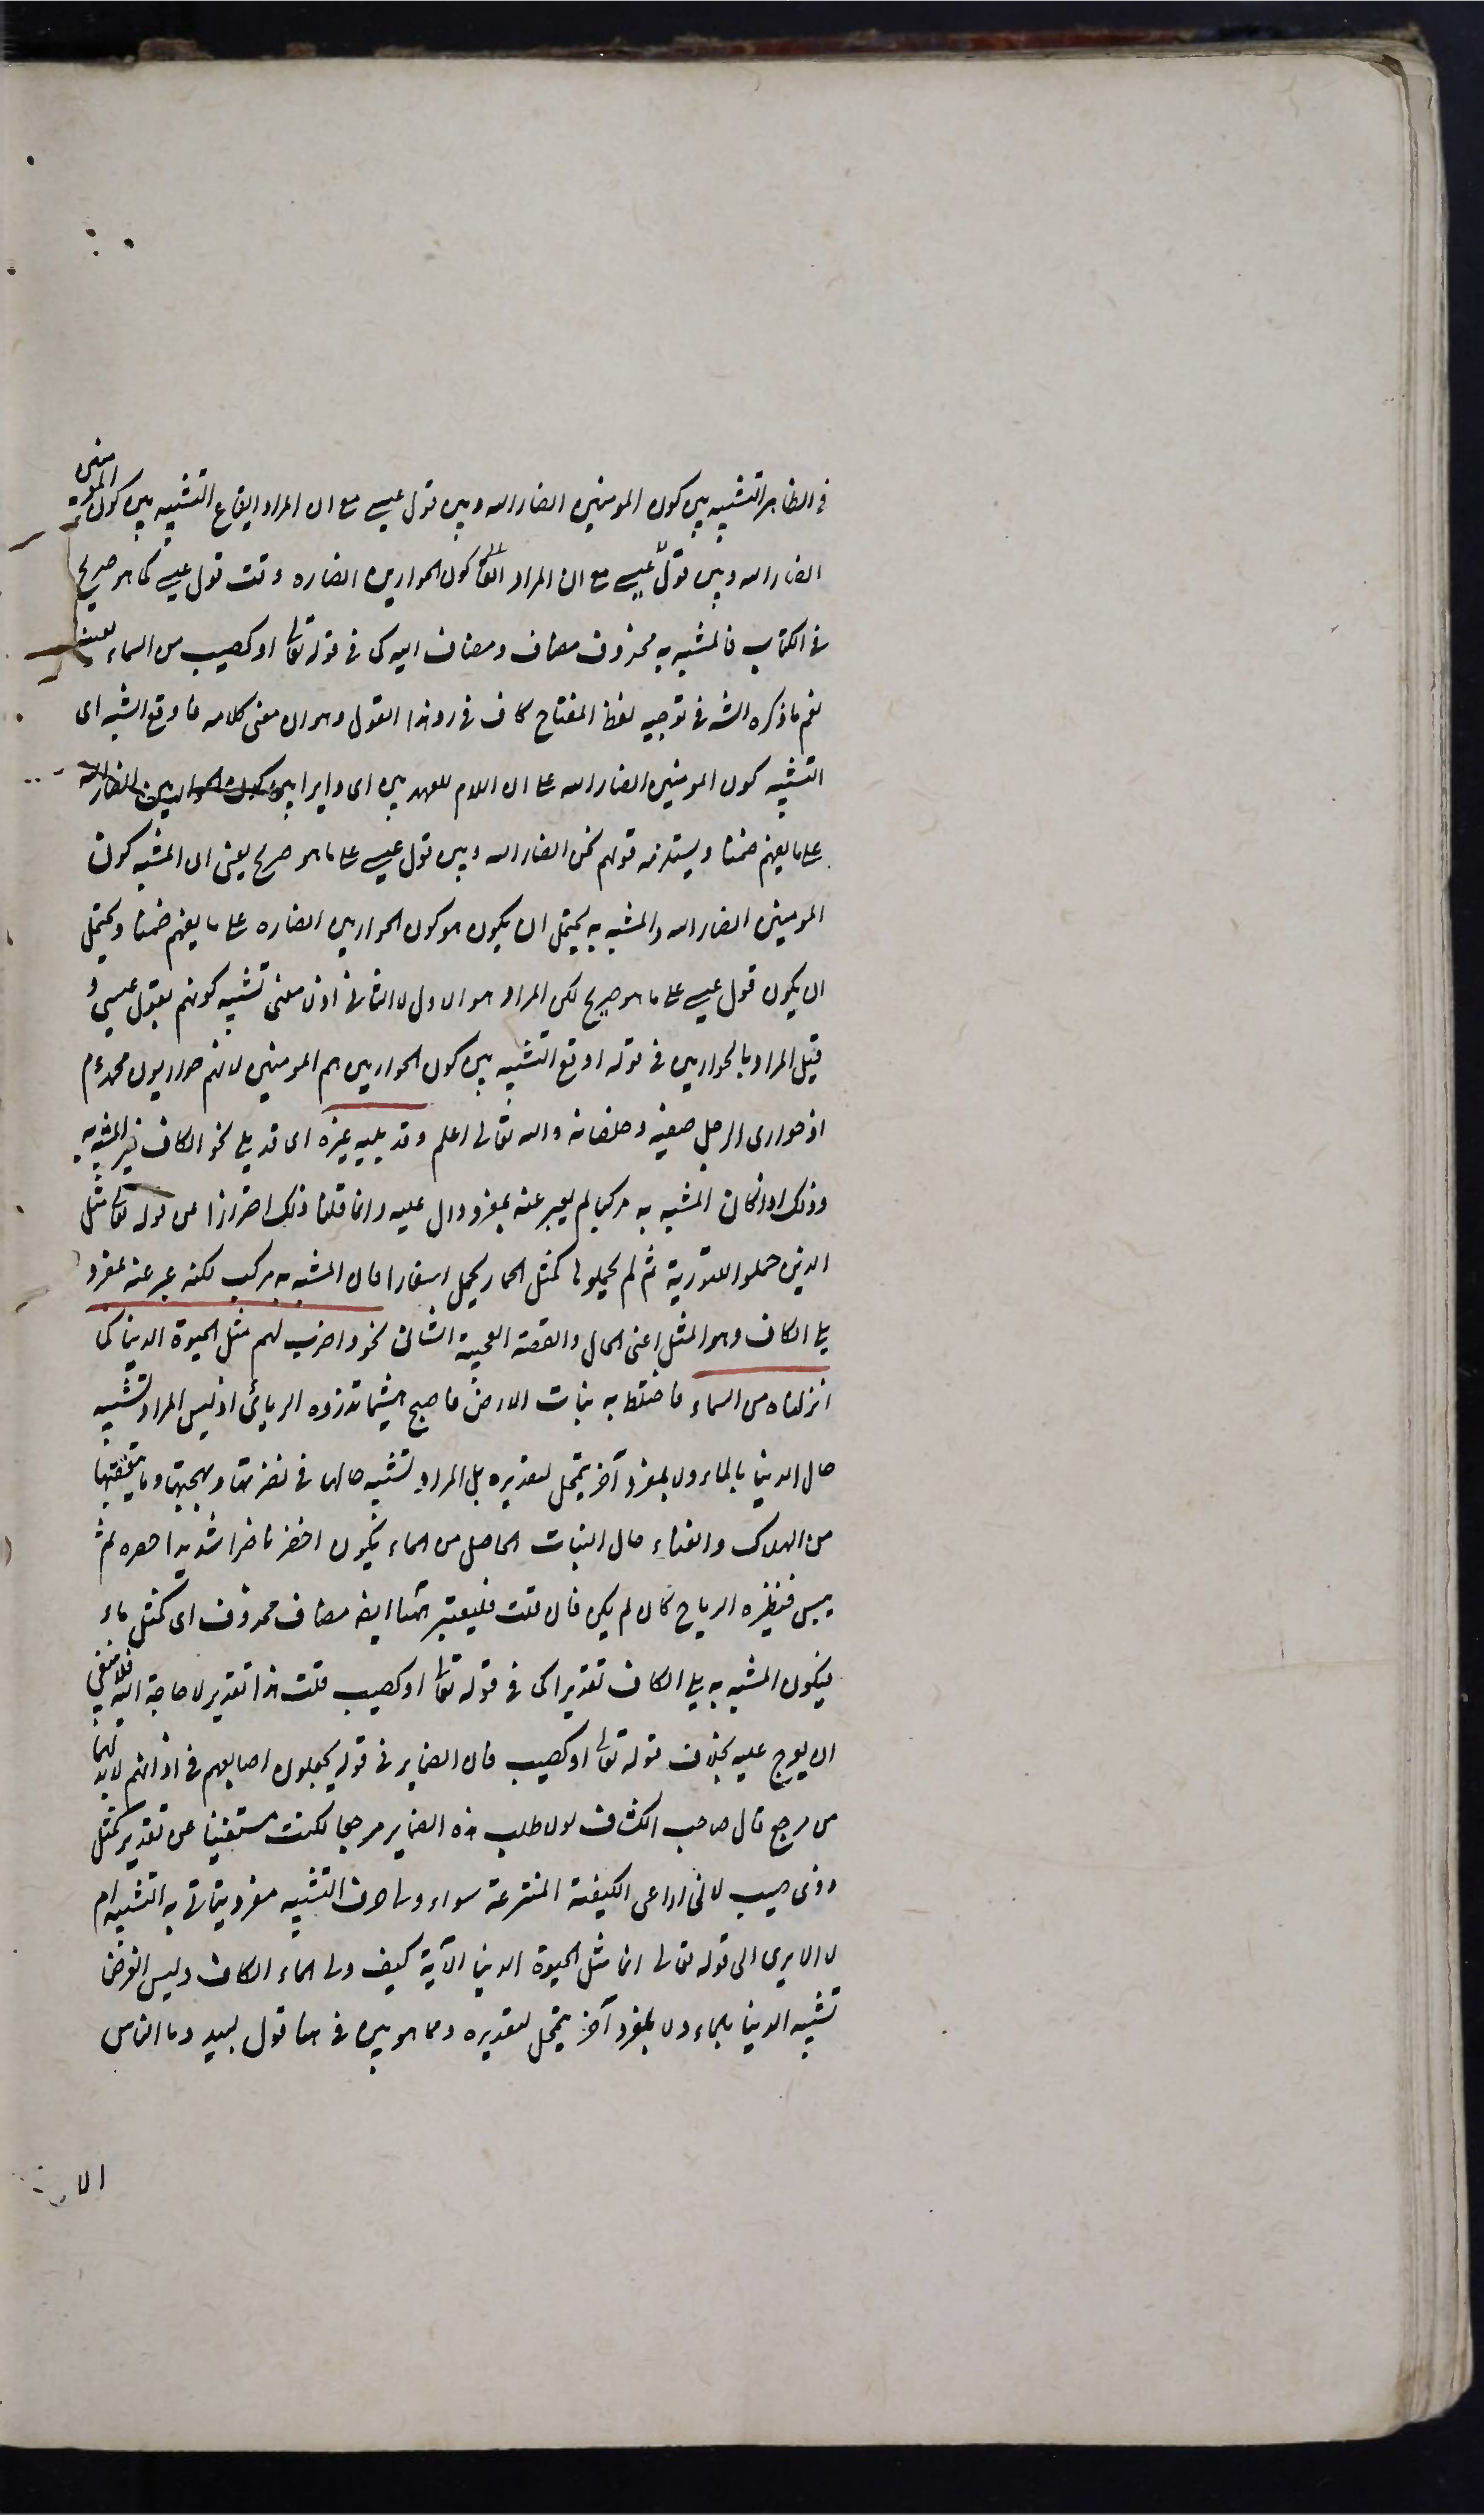 في الظاهر التشبيه بين كون المومنين انصار الله وبين قول عيسى مع ان المراد ايقاع التشبيه بين كون المومنين
انصار الله وبين قول عيسى مع ان المراد كون الحواريين انصاره وقت قول عيسى كما هو صريح
في الكتاب فالمشبه به محذوف مضاف ومضاف اليه كما في قوله تعالى او كصيب من السماء بعينه
نعم ما ذكره الش في توجيه لفظ المفتاح كاف في رد هذا القول وهو ان معنى كلامه فاوقع الشبه اى
التشبيه كون المومنين انصار الله على ان اللام للعهد بين اى دايرا بين كون الحواريين انصار الله
على ما يفهم ضمنا ويستلزمه قولهم نحن انصار الله وبين قول عيسى على ما هو صريح يعنى ان المشبه كون
المومنين انصار الله والمشبه به يحتمل ان يكون هو كون الحواريين انصاره على ما يفهم ضمنا ويحتمل
ان يكون قول عيسى على ما هو صريح لكن المراد هو الاول لا الثانى اذ لا معنى تشبيه كونهم بقول عيسى و
قيل المراد بالحواريين في قوله اوقع التشبيه بين كون الحواريين هم المومنين لانهم حواريون محمد عم
اذ حوارى الرجل صفيه وخلصانه والله تعالى اعلم وقد يليه غيره اى قد يلى نحو الكاف غير المشبه به
وذلك اذا كان المشبه به مركبا لم يعبر عنه بمفرد دال عليه وانما قلنا ذلك احترازا عن قوله تعالى مثل
الذين حملوا التورية ثم لم يحملوها كمثل الحمار يحمل اسفارا فان المشبه به مركب لكنه عبر عنه بمفرد
يلى الكاف وهو المثل اعنى الحال والقصة العجيبة الشان نحو واضرب لهم مثل الحيوة الدنيا كما
انزلناه من السماء فاختلط به نبات الارض فاصبح هشيما تذروه الرياح اذ ليس المراد تشبيه
حال الدنيا بالماء ولا بمفرد آخر يتمحل لتقديره بل المراد تشبيه حالها في نضرتها وبهجتها وما يتعقبها
من الهلاك والفناء بحال النبات الحاصل من الماء يكون اخضر ناضرا شديد الخضرة ثم
ييبس فتطيره الرياح كان لم يكن فان قلت فليعتبر ههنا ايضا مضاف محذوف اى كمثل ماء
فيكون المشبه به يلى الكاف تقديرا كما في قوله تعالى او كصيب قلت هذا تقدير لا حاجة اليه فلا ينبغي
ان يعرج عليه بخلاف قوله تعالى او كصيب فان الضماير في قوله يجعلون اصابعهم في اذانهم لابد لها
من مرجع قال صاحب الكشاف لولا طلب هذه الضماير مرجعا لكنت مستغنيا عن تقدير كمثل
ذوى صيب لانى اراعى الكيفية المنتزعة سواء ولى حرف التشبيه مفرد يتاتى به التشبيه ام
لا الا يرى الى قوله تعالى انما مثل الحيوة الدنيا الآية كيف ولى الماء الكاف وليس الغرض
تشبيه الدنيا بالماء ولا بمفرد آخر يتمحل لتقديره ومما هو بين في هذا قول لبيد وما الناس
الا